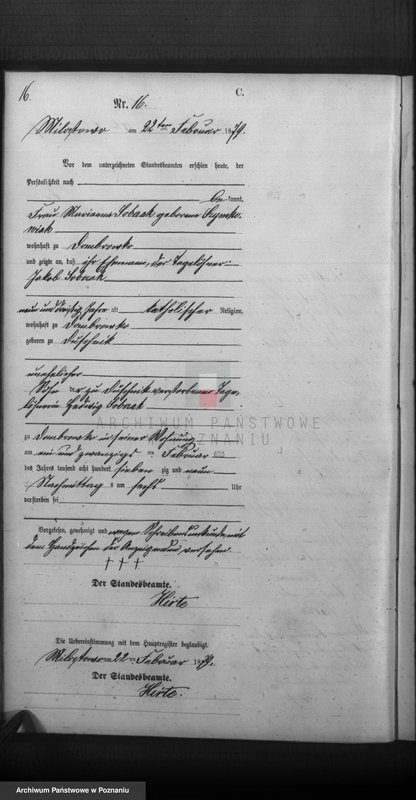 16.
C.
Nr. 16.
Milostowo am 22ten Februar 1879.
Vor dem unterzeichneten Standesbeamten erschien heute, der
Persönlichkeit nach
be kannt,
Frau Marianna Sobczak geborene
wiak
wohnhaft zu Dombrowko
und zeigte an, daß ihr Ehemann, der Tagelöhner
Jakob Sobczak
neun und dreißig Jahre alt katholischer Religion,
wohnhaft zu Dombrowko
geboren zu Duschnik
unehelicher
Sohn der zu Duschnik verstorbenen Tage-
löhnerin Hedwig Sobczak
ARCHIWUM PAŃSTWOWE
W POZNANIU
zu Dombrowko in seiner Wohnung
am ein und zwanzigs ten Februar
des Jahres tausend acht hundert sieben zig und neun
Nachmittag s um sechs Uhr
verstorben sei
Vorgelesen, genehmigt und wegen Schreibensunkunde mit
dem Handzeichen der Anzeigenden versehen
† † †
Der Standesbeamte.
Hirte
Die Uebereinstimmung mit dem Hauptregister beglaubigt.
Milostowo am 22 ten Februar 1879.
Der Standesbeamte.
Hirte.
Archiwum Państwowe w Poznaniu